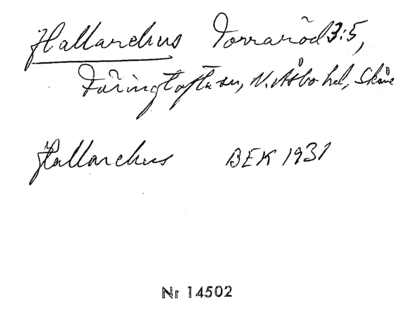 Hallarehus Torraröd 3:5,
Färingtofta sn, N. Åsbo hd, Skåne
Hallarehus BEK 1931
Nr 14502